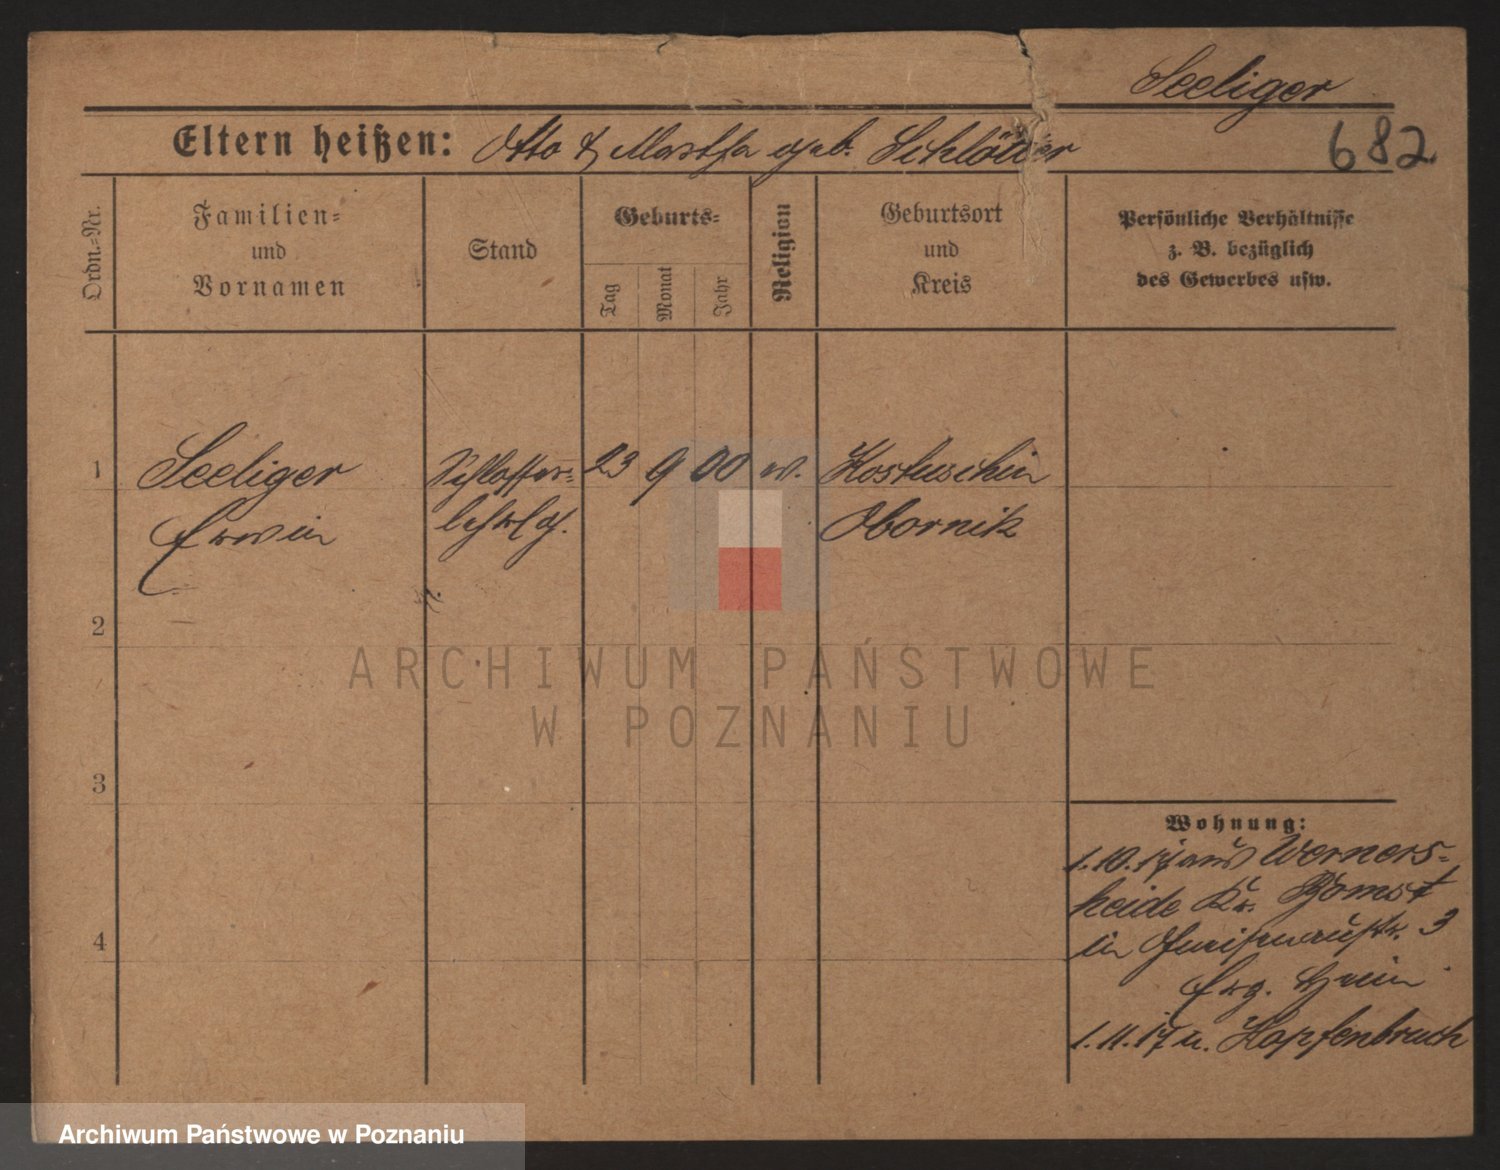 Seeliger
Eltern heißen: Otto & Martha geb. Schlöther
682
Ordn.=Nr.
Familien=
und
Vornamen
Stand
Geburts=
Tag
Monat
Jahr
Religion
Geburtsort
und
Kreis
Persönliche Verhältnisse
z. B. bezüglich
des Gewerbes usw.
1 Seeliger Schlosser= 23 9 00 w. Kostuschin
Erwin lehrlg. Obornik
2
ARCHIWUM PAŃSTWOWE
W POZNANIU
3
Wohnung:
1.10.17 aus Werners=
heide Kr. Bomst
4
in 3
Erz. Heim
1.11.17 n. Hopfenbruch
Archiwum Państwowe w Poznaniu